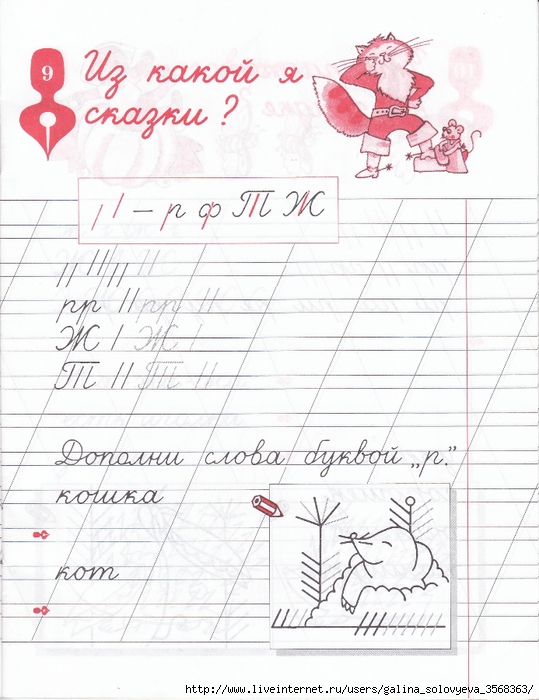 9
Из какой я
сказки?
– р ф Т Ж
рр рр
Ж Ж
Т Т
Дополни слова буквой „р.”
кошка
кот
http://www.liveinternet.ru/users/galina_solovyeva_3568363/